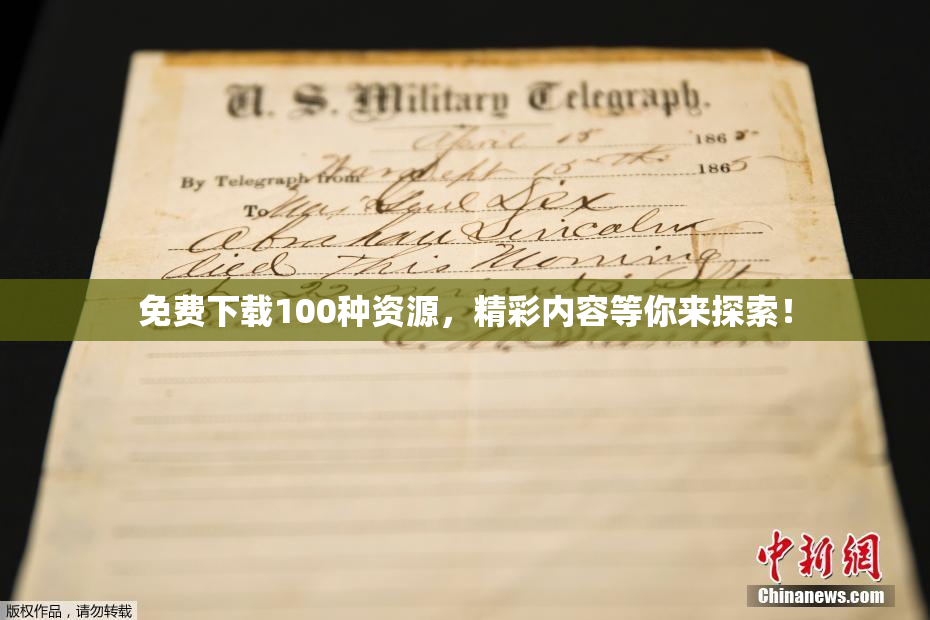 U. S. Military Telegraph.
April 15 1865
By Telegraph from War Dept 15th 1865
To Maj Genl Dix
Abraham Lincoln
died this Morning
at 22 minutes after
免费下载100种资源，精彩内容等你来探索！
E. M. Stanton
中新网
Chinanews.com
版权作品，请勿转载